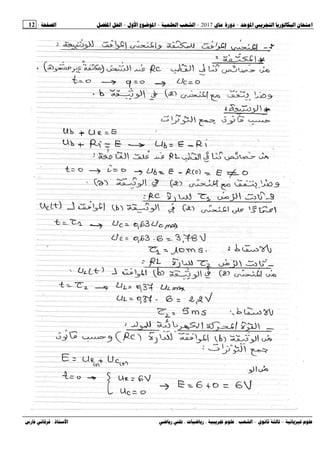 امتحان البكالوريا التجريبي الموحد - دورة ماي 2017 - الشعب العلمية - الموضوع الأول - الحل المفصل الصفحة - 12
- المنحنى الموافق للمكثفة والمنحنى الموافق للوشيعة :
* المكثفة :
من خصائص ثنائي القطب RC عند الشحن (مكثفة غير مشحونة).
t=0 → q=0 → uc=0
وهذا يتفق مع المنحنى (2) في الوثيقة b.
* الوشيعة :
حسب قانون جمع التوترات
Ub + UR = E
Ub + Ri = E → Ub = E - Ri
من خصائص ثنائي القطب RL عند غلق القاطعة :
t=0 → i=0 → Ub = E - R(0) = E ≠ 0
وهذا يتفق مع المنحنى (2) في الوثيقة (a).
- ثابت الزمن τ1 للدارة RC :
اعتمادا على المنحنى (2) في الوثيقة (b) الموافق لـ Uc(t)
t = τ1 → Uc = 0,63 Ucmax
Uc = 0,63 . 6 = 3,78 V
بالاسقاط : τ1 = 10 ms.
- ثابت الزمن τ2 للدارة RL :
من المنحنى (2) في الوثيقة (a) الموافق لـ UL(t).
t = τ2 → UL = 0,37 ULmax
UL = 0,37 . 6 = 2,2 V
بالاسقاط : τ2 = 5 ms
- القوة المحركة الكهربائية للمولد :
من الوثيقة (b) الموافقة للدارة (RC) وحسب قانون
جمع التوترات :
E = UR(t) + Uc(t)
t=0 → { UR = 6V
Uc = 0 → E = 6+0 = 6V
علوم فيزيائية - ثالثة ثانوي - الشعب : علوم تجريبية - رياضيات - تقني رياضي الأستاذ : فرقاني فارس